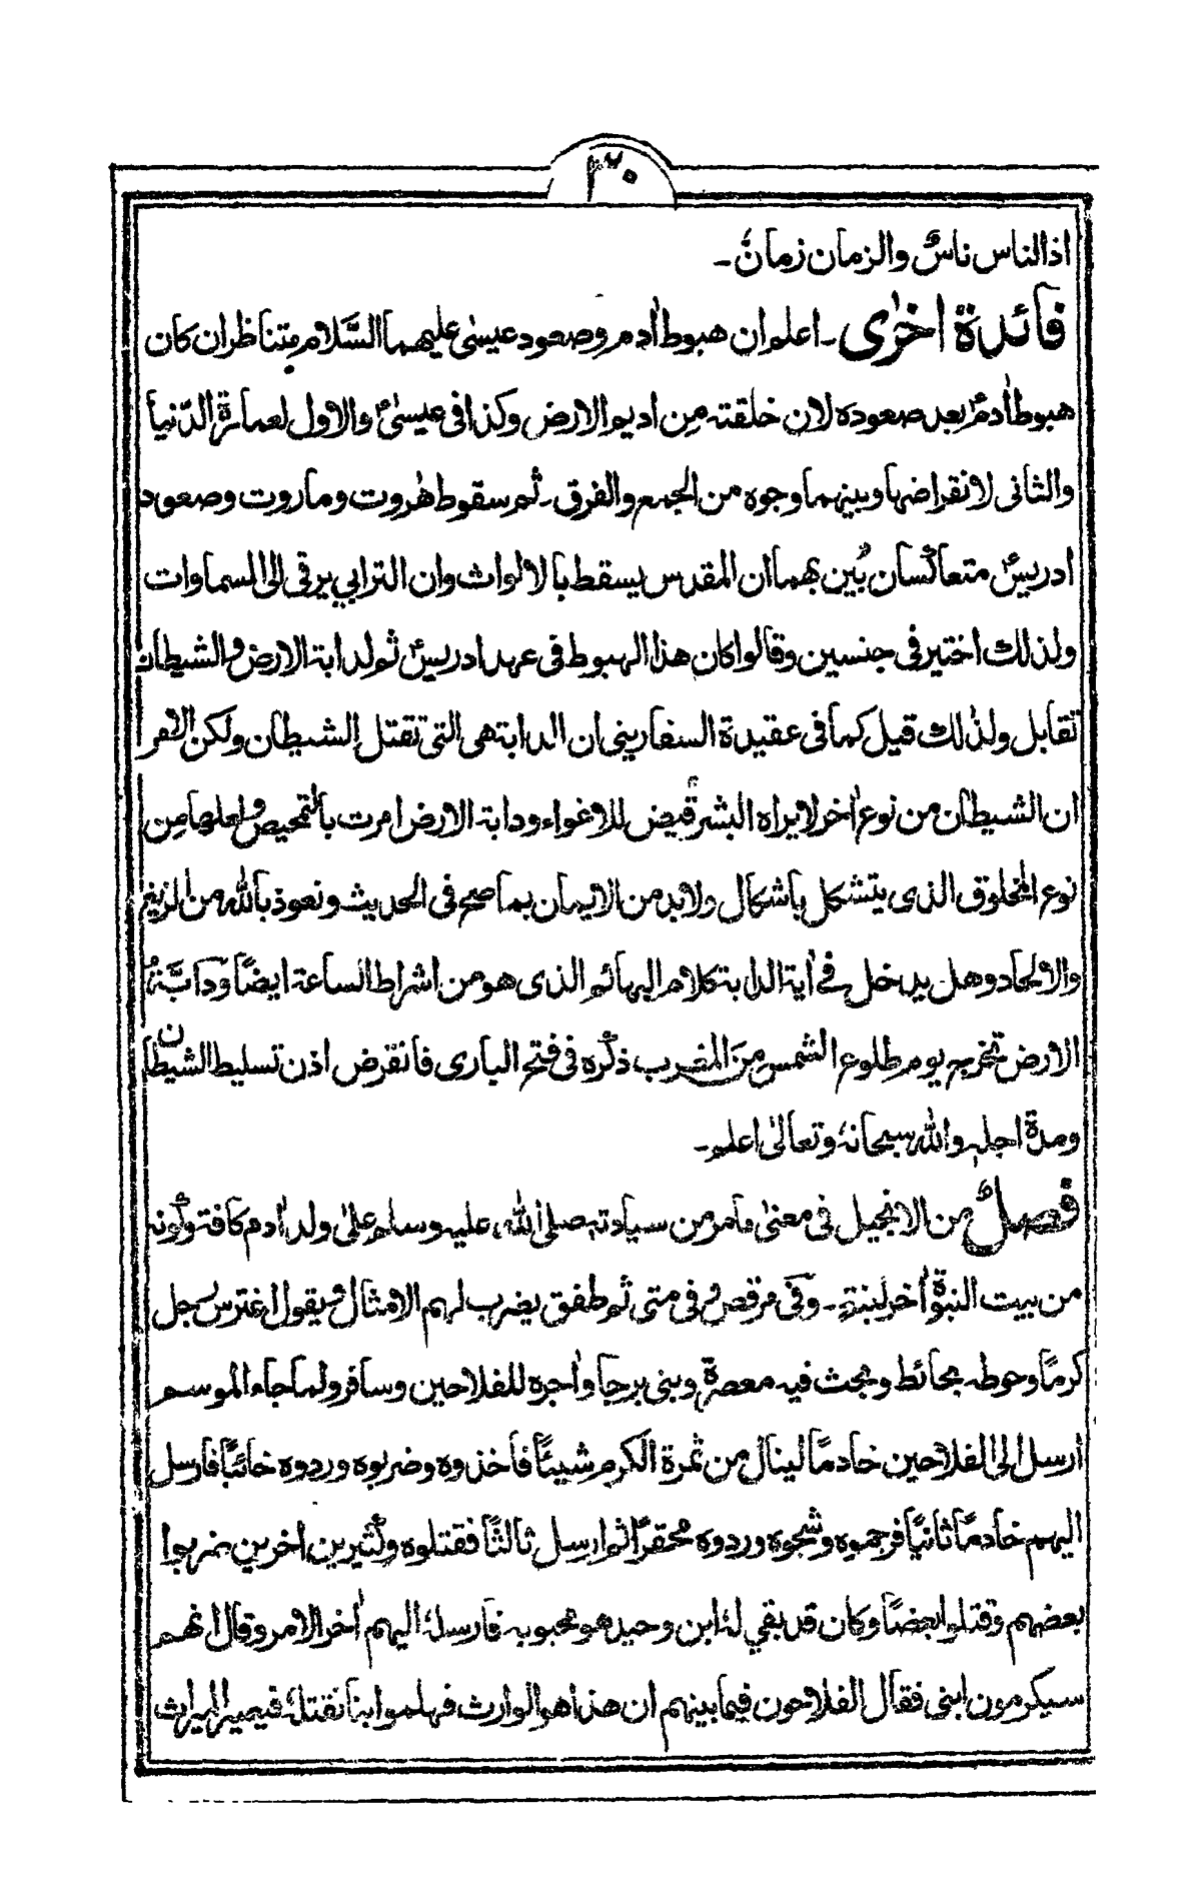 ٣٢٠
اذ الناس ناسٌ والزمان زمانٌ ـ
فائدة اخرٰى ـ اعلم ان هبوط اٰدم وصعود عيسٰى عليهما السَّلام متناظران كان
هبوط اٰدمؑ بعد صعوده لان خلقته مِن اديم الارض وكذا فى عيسٰىؑ والاول لعمارة الدّنيا
والثانى لانقراضها وبينهما وجوه من الجمع والفرق ـ ثم سقوط هٰروت وماروت وصعود
ادريسؑ متعاكسان بُين بهما ان المقدس يسقط بالالواث وان الترابي يرقى الى السماوات
ولذلك اختير فى جنسين وقالوا كان هذا الهبوط فى عهد ادريسؑ ثم لدابة الارض والشيطان
تقابل ولذٰلك قيل كما فى عقيدة السفارينى ان الدابة هى التى تقتل الشيطان ولكن الامر
ان الشيطان من نوع اٰخر لا يراه البشر قيض للاغواء ودابة الارض امرت بالتمحيص ولعلها مِن
نوع المخلوق الذى يتشكل باشكال ولابد من الايمان بما صح فى الحديث ونعوذ بالله من الزيغ
والالحاد وهل يدخل فى اٰية الدابة كلام البهائم الذى هو من اشراط الساعة ايضًا ودابَّةُ
الارض تخرج يوم طلوع الشمس مِنَ المغرب ذكره فى فتح البارى فانقرض اذن تسليط الشيطان
ومدة اجلهٖ والله سبحانهٗ وتعالىٰ اعلم ـ
فصلٌ من الانجيل فى معنىٰ مامر من سيادتهٖ صلى الله عليه وسلم علىٰ ولد اٰدم كافة وكونه
من بيت النبوة اٰخر لبنةٍ ـ وفى مرقص وفى متى ثم طفق يضرب لهم الامثال ويقول اغترس رجل
كرمًا وحوطه بحائط وبحث فيه معصرةً وبنى برجا واٰجره للفلاحين وسافر ولما جاء الموسم
ارسل الى الفلاحين خادمًا لينال من ثمرة الكرم شيئًا فاخذوه وضربوه وردوه خائبًا فارسل
اليهم خادمًا ثانيًا فرجموه وشجوه وردوه محقرًا ثم ارسل ثالثًا فقتلوه وكثيرين اٰخرين ضربوا
بعضهم وقتلوا بعضًا وكان قد بقي لهٗ ابن وحيد هو محبوبه فارسلهٗ اليهم اٰخر الامر وقال انهم
سيكرمون ابنى فقال الفلاحون فيما بينهم ان هذا هو الوارث فهلموا بنا نقتلهٗ فيصير الميراث